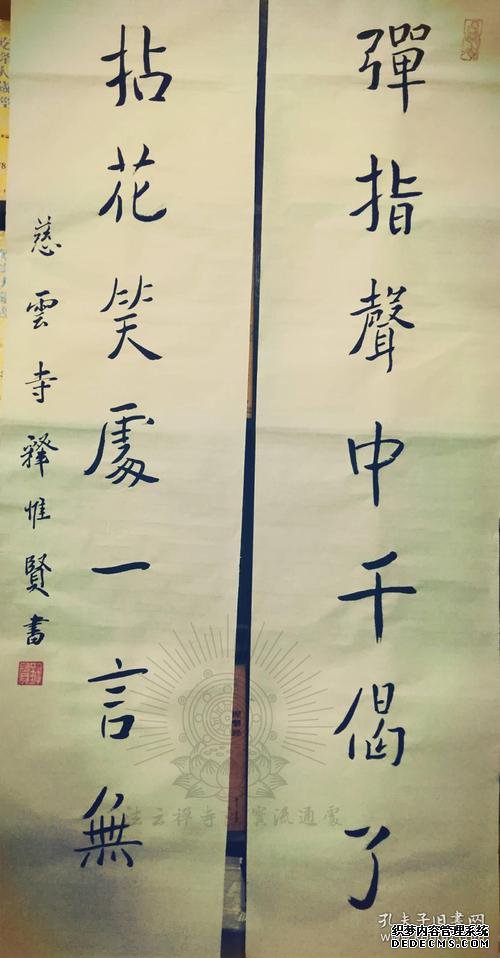 彈指聲中千偈了
拈花笑處一言無
慈雲寺釋惟賢書
法云禪寺法寶流通處
孔夫子旧書网
织梦内容管理系统
DEDECMS.COM